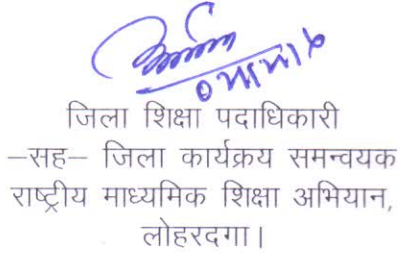 जिला शिक्षा पदाधिकारी
–सह– जिला कार्यक्रय समन्वयक
राष्ट्रीय माध्यमिक शिक्षा अभियान,
लोहरदगा।